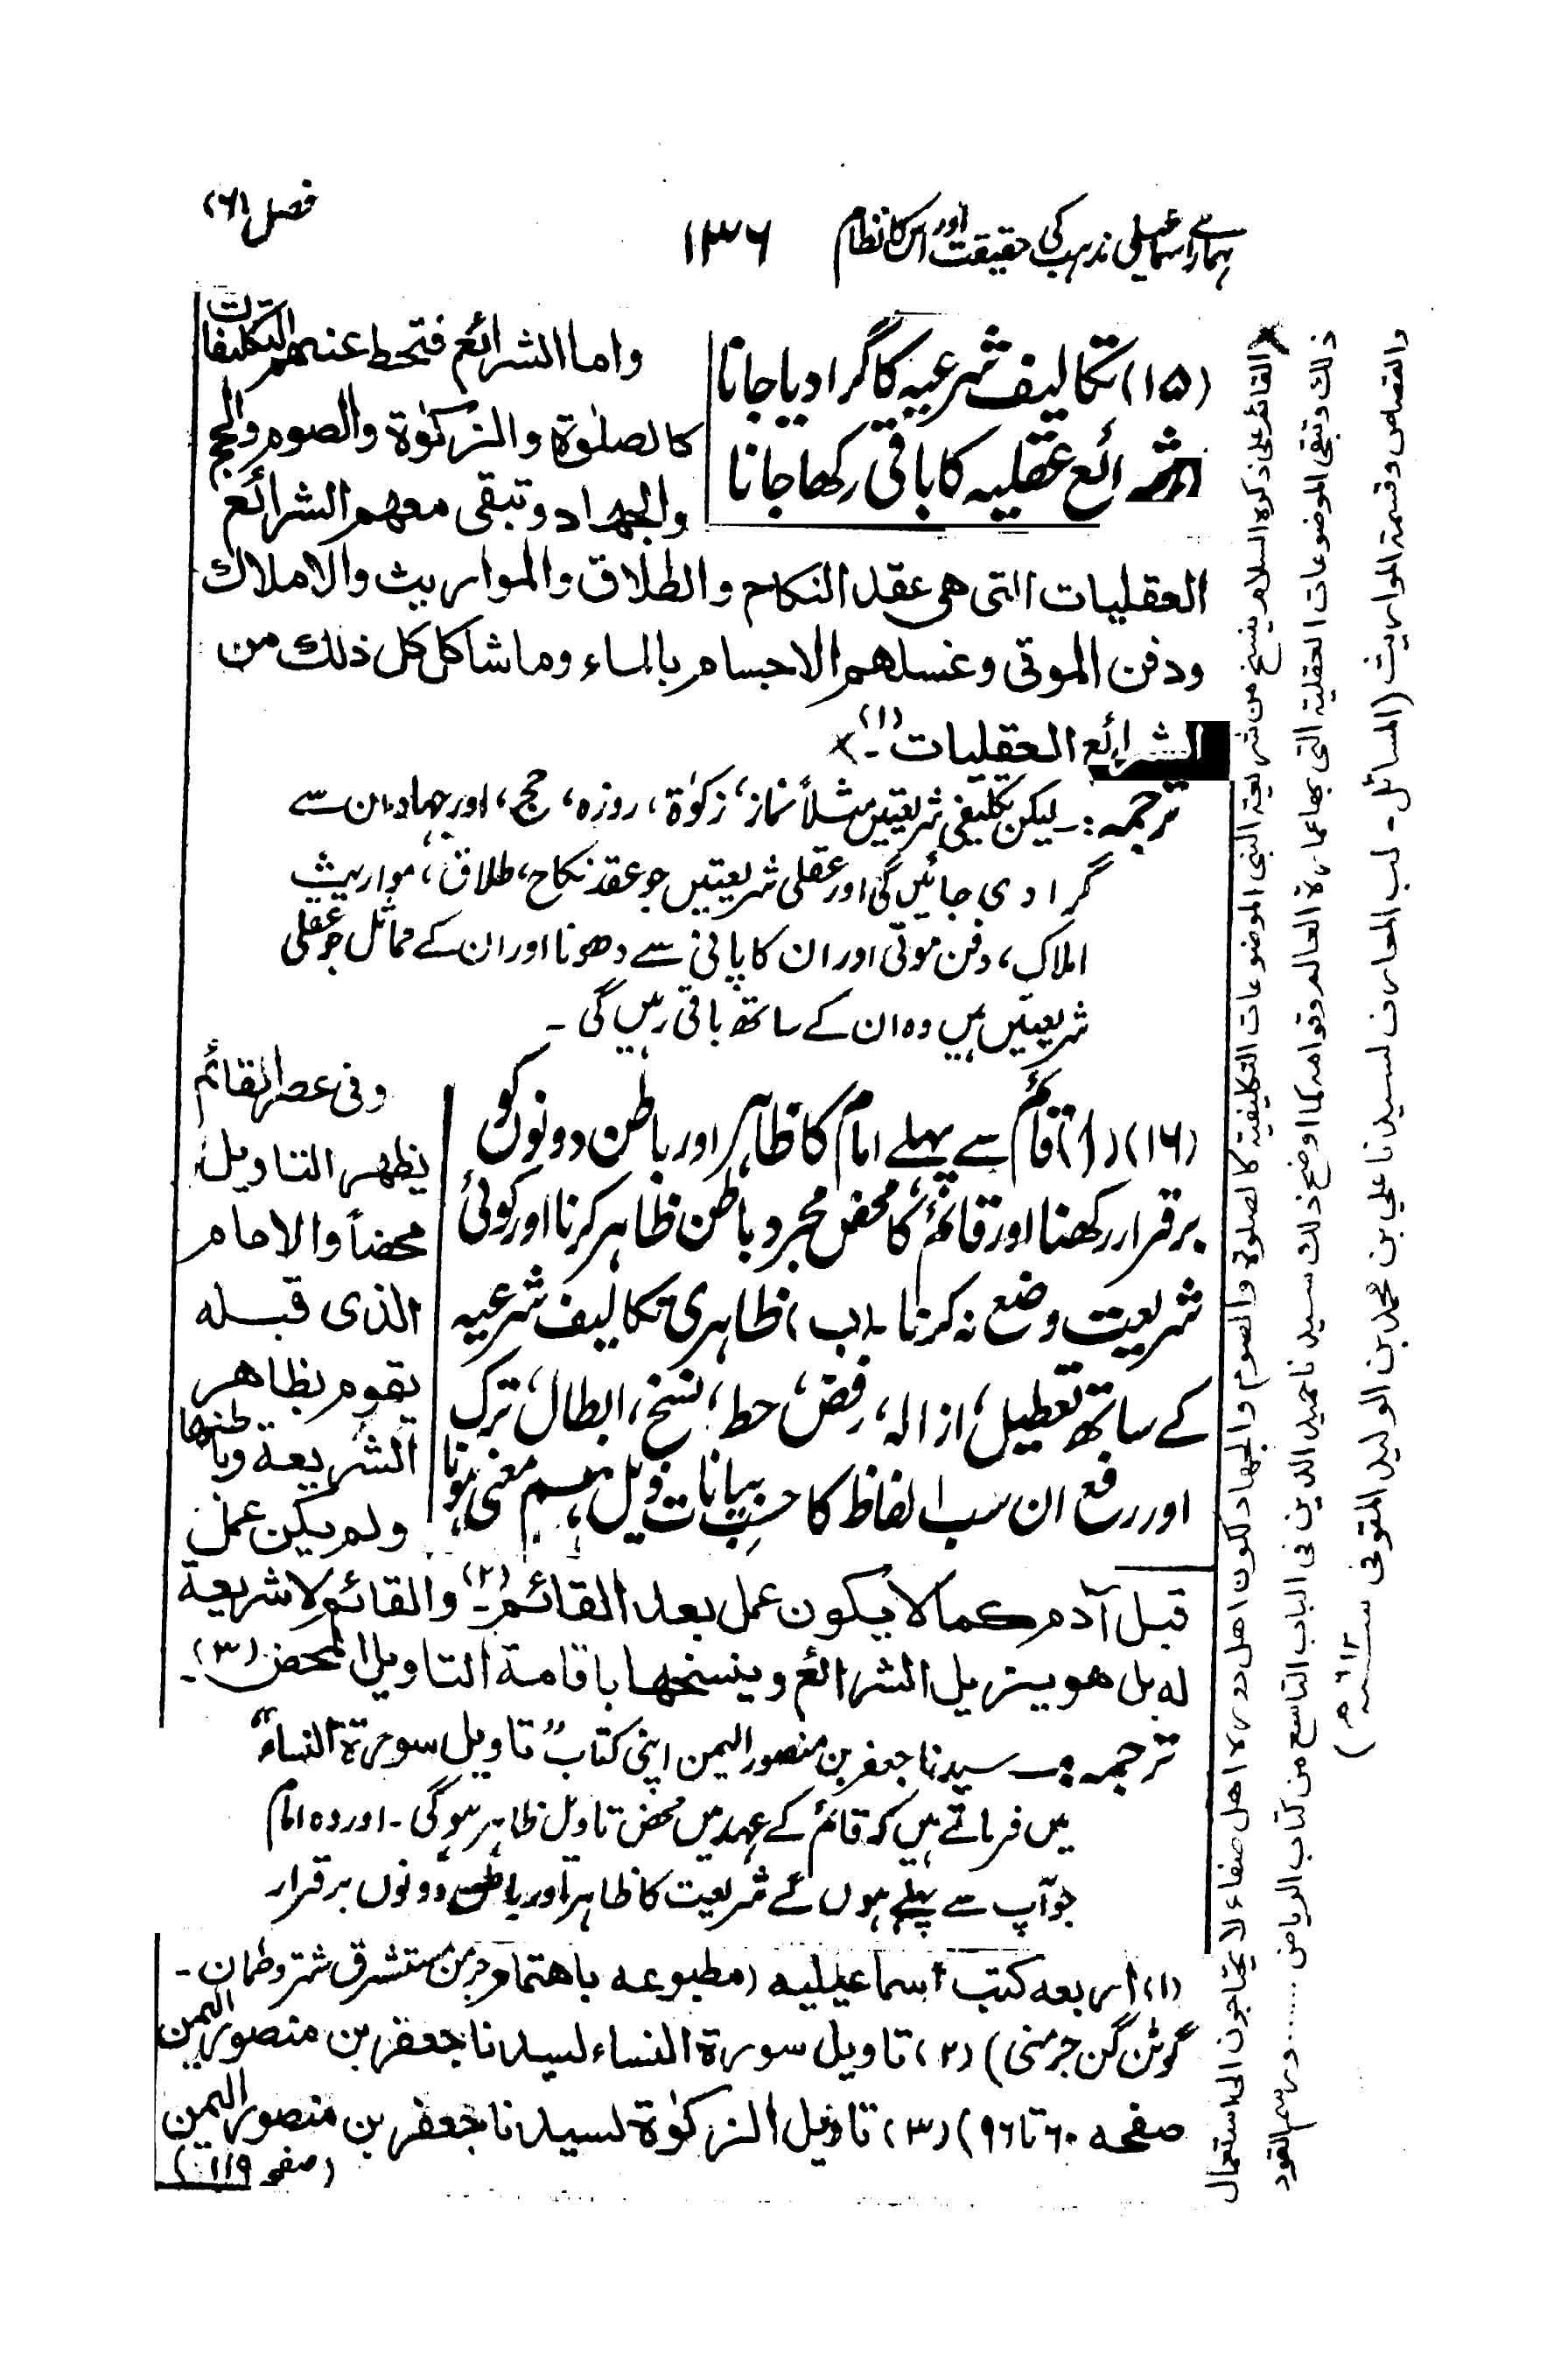 ہمارے اسماعیلی مذہب کی حقیقت اور اس کا نظام
۱۳۶
فصل (۶)
(۱۵) تکالیف شرعیہ کا گرا دیا جانا
اور شرائع عقلیہ کا باقی رکھا جانا
واما الشرائع فتحط عنہم التکلیفات
کالصلوٰۃ والزکوٰۃ والصوم والحج
والجہاد وتبقی معہم الشرائع
العقلیات التی ھی عقد النکاح والطلاق والمواریث والاملاک
ودفن الموتی وغسلھم الاجسام بالماء وما شاکل کل ذلک من
الشرائع العقلیات (۱)۔ ×
ترجمہ :۔ لیکن تکلیفی شریعتیں مثلاً نماز، زکوٰۃ، روزہ، حج، اور جہاد ان سے
گرا دی جائیں گی اور عقلی شریعتیں جو عقد نکاح، طلاق، مواریث
املاک، دفن موتی اور ان کا پانی سے دھونا اور ان کے مماثل جو عقلی
شریعتیں ہیں وہ ان کے ساتھ باقی رہیں گی ۔
(۱۶) (ا) قائم سے پہلے امام کا ظاہر اور باطن دونوں کو
برقرار رکھنا اور قائم کا محض مجرد باطن ظاہر کرنا اور کوئی
شریعت وضع نہ کرنا (ب) ظاہری تکالیف شرعیہ
کے ساتھ تعطیل، ازالہ، رفض، حط، نسخ، ابطال، ترک
اور رفع ان سب الفاظ کا حسب بیانات ذیل ہم معنی ہونا
وفی عصر القائم
یظھر التاویل
محضاً والامام
الذی قبلہ
یقوم بظاھر
الشریعۃ وباطنھا
ولم یکن عمل
قبل آدم کما لا یکون عمل بعد القائم (۲)۔ والقائم لا شریعۃ
لہ بل ھو یزیل الشرائع وینسخھا باقامۃ التاویل المحض (۳)۔
ترجمہ :۔ سیدنا جعفر بن منصور الیمن اپنی کتاب "تاویل سورۃ النساء"
میں فرماتے ہیں کہ قائم کے عہد میں محض تاویل ظاہر ہوگی ۔ اور وہ امام
جو آپ سے پہلے ہوں گے شریعت کا ظاہر اور باطن دونوں برقرار
(۱) اربعہ کتب اسماعیلیہ (مطبوعہ باھتمام جرمن مستشرق شتروطمان ۔
گوٹن گن جرمنی) (۲) تاویل سورۃ النساء لسیدنا جعفر بن منصور الیمن
صفحہ ۶۰ تا ۹۶) (۳) تاویل الزکوٰۃ لسیدنا جعفر بن منصور الیمن
(صفحہ ۱۱۹)
× القائم علی ذکرہ السلام ینسخ من شریعۃ النبی الموضوعات التکلیفیۃ کالصلوۃ والصوم والجھاد لکون اھل دورہ اھل صفاء لا یحتاجون الی استعمال
ذلک وتبقی الموضوعات العقلیۃ التی بھا عمارۃ العالم وقوامہ کما اوضح ذلک سیدنا حمید الدین فی الباب التاسع من کتاب الریاض ...... ورسم القود
والقصاص وقسمۃ المواریث (المسائل ۔ لب المعارف لسیدنا علی بن محمد بن الولید المتوفی سنہ ۶۱۲ھ)